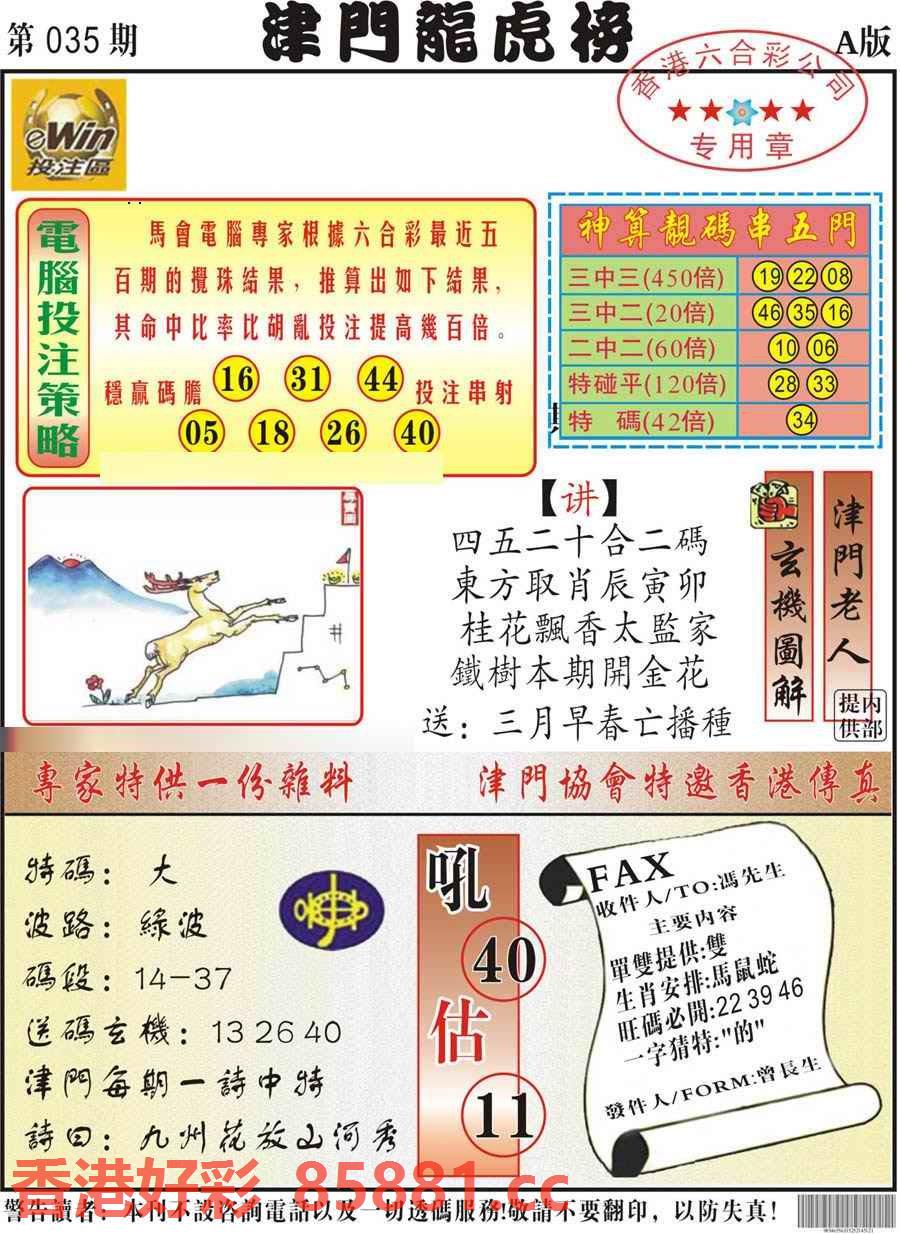 第 035 期
津門龍虎榜
A版
香港六合彩公司
专用章
eWin
投注區
電腦投注策略
馬會電腦專家根據六合彩最近五
百期的攪珠結果，推算出如下結果，
其命中比率比胡亂投注提高幾百倍。
穩贏碼膽 16 31 44 投注串射
05 18 26 40
神算靚碼串五門
三中三(450倍) 19 22 08
三中二(20倍) 46 35 16
二中二(60倍) 10 06
特碰平(120倍) 28 33
特 碼(42倍) 34
【讲】
四五二十合二碼
東方取肖辰寅卯
桂花飄香太監家
鐵樹本期開金花
送：三月早春亡播種
玄機圖解
津門老人
提供
内部
專家特供一份雜料
津門協會特邀香港傳真
特碼：大
波路：綠波
碼段：14-37
送碼玄機：13 26 40
津門每期一詩中特
詩曰：九州花放山河秀
吼
40
估
11
FAX
收件人/TO:馮先生
主要内容
單雙提供:雙
生肖安排:馬鼠蛇
旺碼必開:22 39 46
一字猜特:"的"
發件人/FORM:曾長生
香港好彩 85881.cc
警告讀者：本刊不設咨詢電話以及一切透碼服務!敬請不要翻印，以防失真!